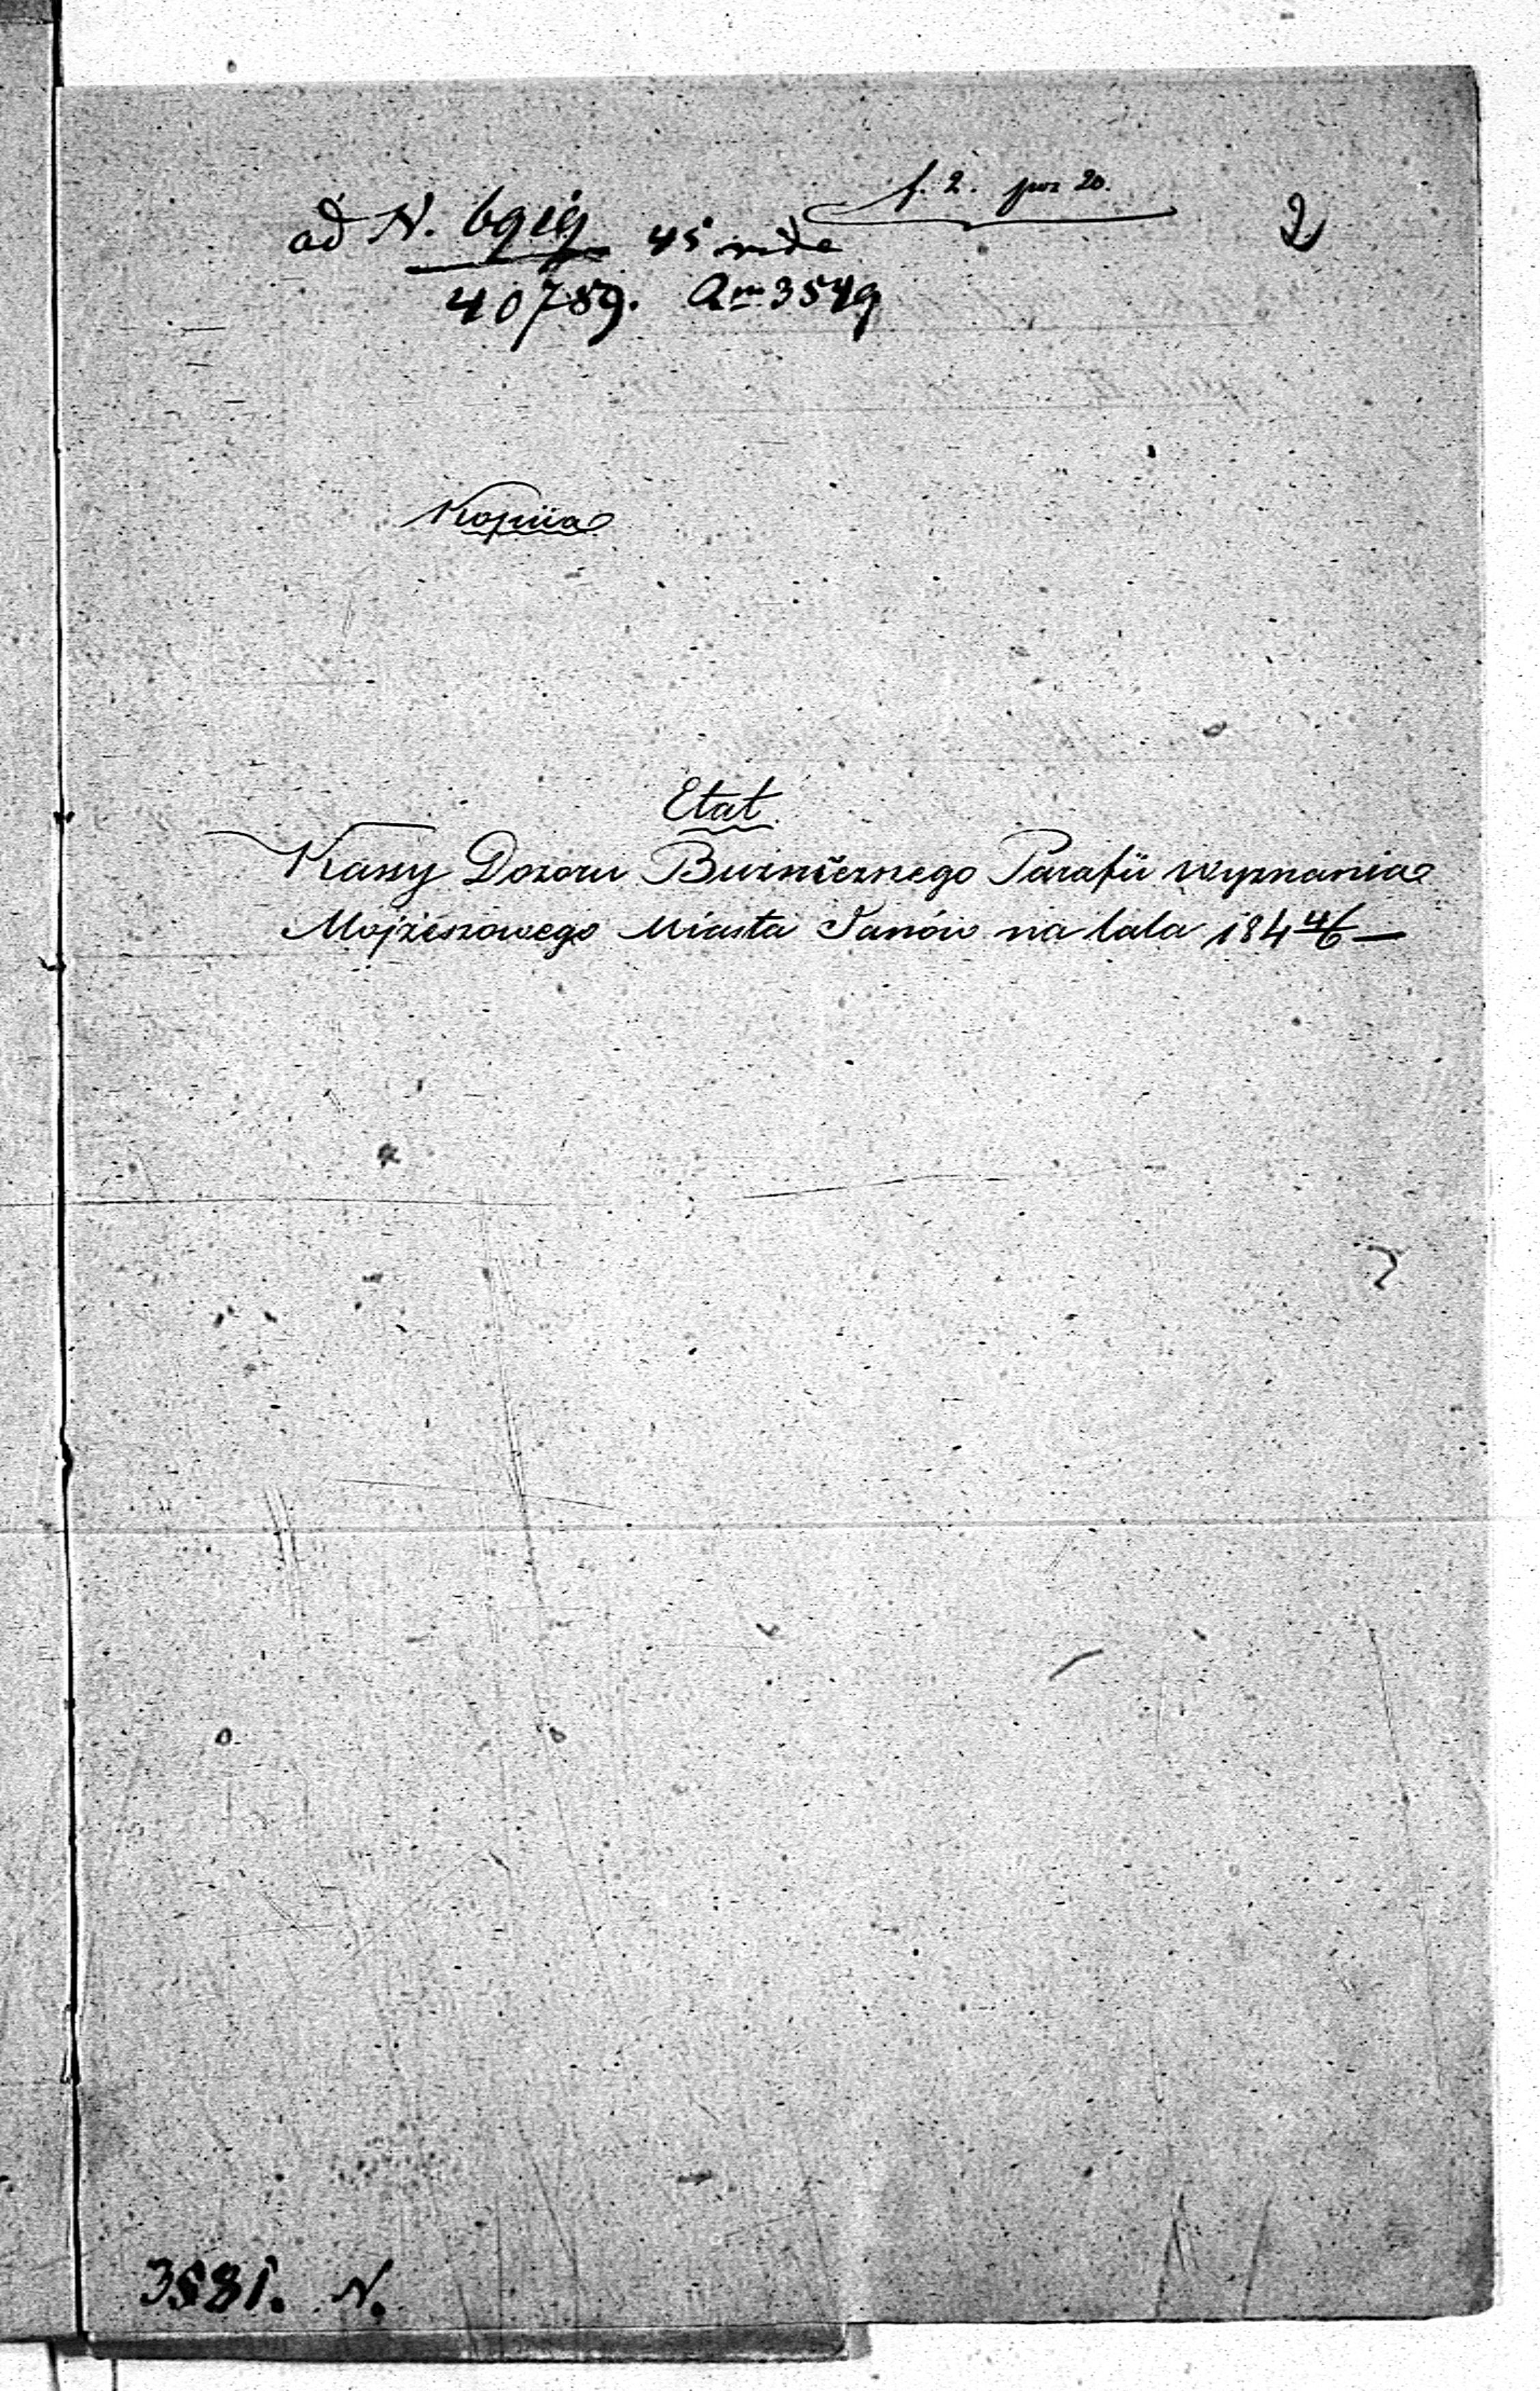 f. 2. poz 20.
2
ad N. 6919 45
40789. 3549
Kopiia
Etat
Kassy Dozoru Bużnicznego Parafii wyznania
Mojżeszowego Miasta Janów na lata 184 4/6
3581. N.